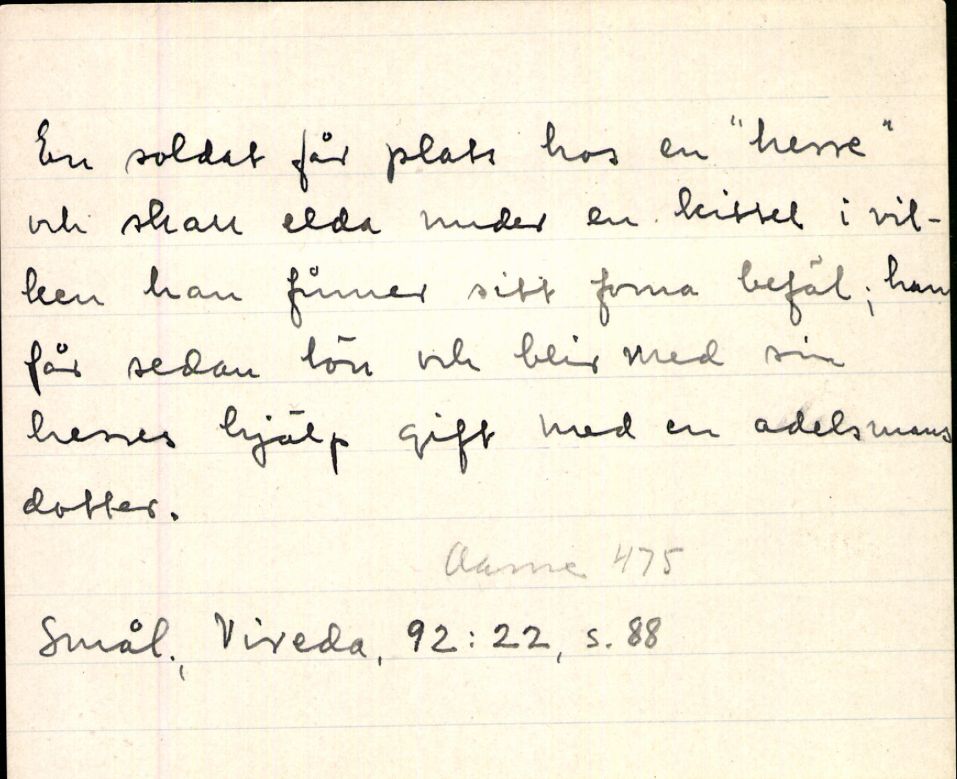 En soldat får plats hos en "herre"
och skall elda under en kittel i vil-
ken han finner sitt forna befäl; han
får sedan lön och blir med sin
herres hjälp gift med en adelsmans
dotter.
Aarne 475
Smål., Vireda, 92:22, s. 88